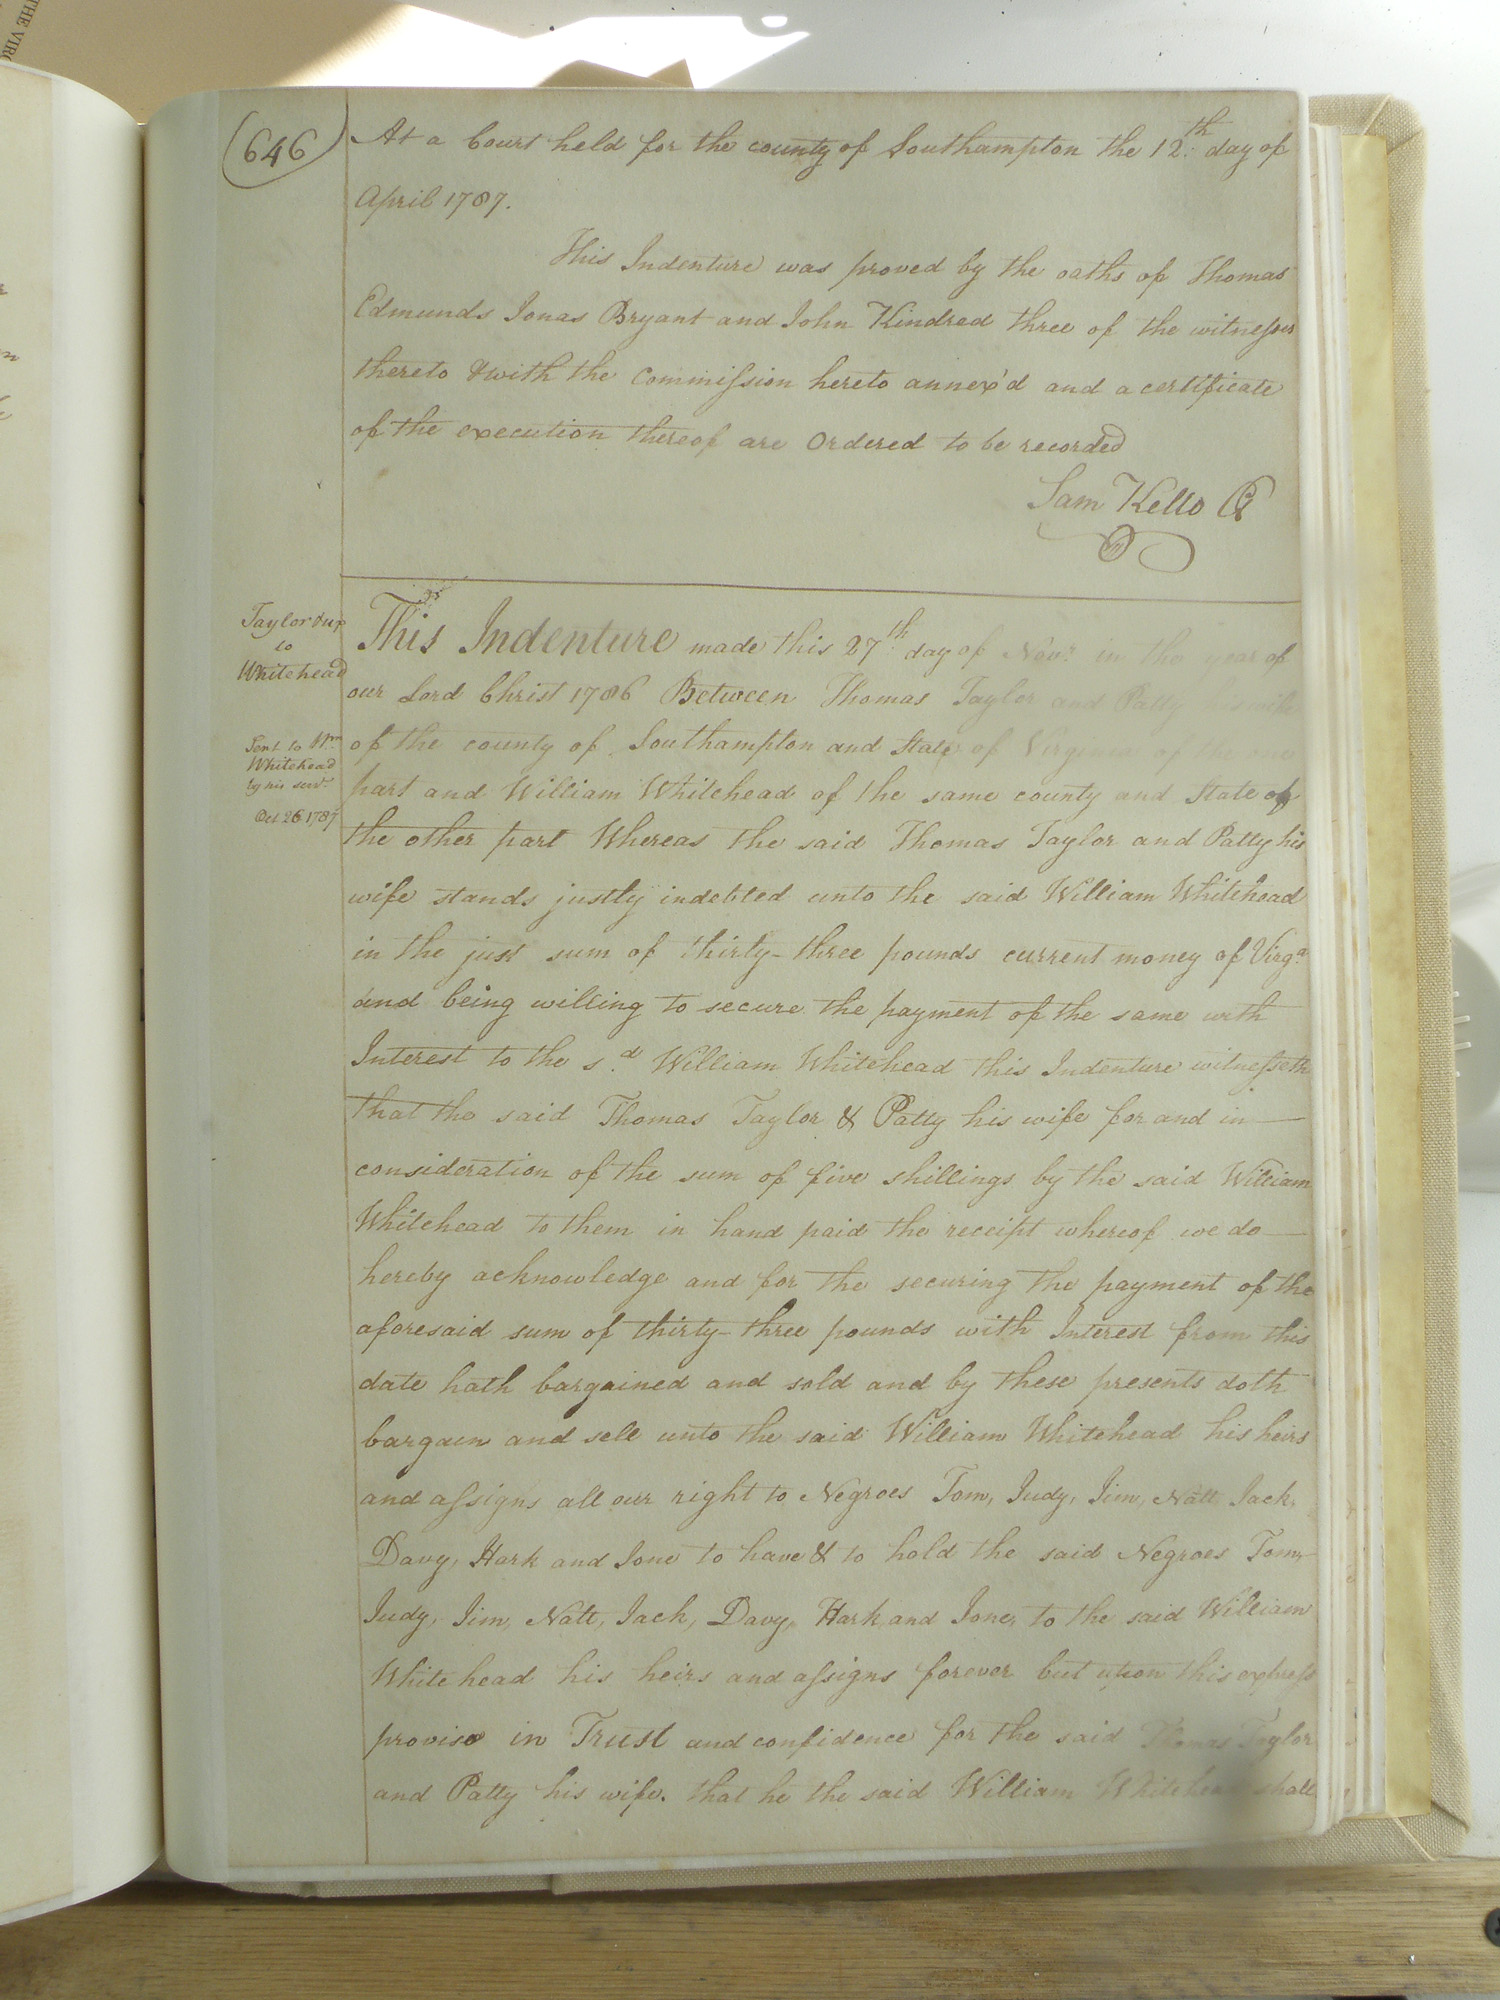 THE VIRG
(646)
At a Court held for the county of Southampton the 12th day of
April 1787.
This Indenture was proved by the oaths of Thomas
Edmunds Jonas Bryant and John Kindred three of the witnesses
thereto & with the Commission hereto annex'd and a certificate
of the execution thereof are Ordered to be recorded
Sam Kello Cl
Taylor & ux
to
Whitehead
Sent to Wm
Whitehead
by his servt
Oct 26 1787
This Indenture made this 27th day of Novr in the year of
our Lord Christ 1786 Between Thomas Taylor and Patty his wife
of the county of Southampton and State of Virginia of the one
part and William Whitehead of the same county and State of
the other part Whereas the said Thomas Taylor and Patty his
wife stands justly indebted unto the said William Whitehead
in the just sum of thirty-three pounds current money of Virga
and being willing to secure the payment of the same with
Interest to the sd William Whitehead this Indenture witnesseth
that the said Thomas Taylor & Patty his wife for and in
consideration of the sum of five shillings by the said William
Whitehead to them in hand paid the receipt whereof we do
hereby acknowledge and for the securing the payment of the
aforesaid sum of thirty-three pounds with Interest from this
date hath bargained and sold and by these presents doth
bargain and sell unto the said William Whitehead his heirs
and assigns all our right to Negroes Tom, Judy, Jim, Natt, Jack,
Davy, Hark and Jone to have & to hold the said Negroes Tom,
Judy, Jim, Natt, Jack, Davy, Hark and Jone, to the said William
Whitehead his heirs and assigns forever but upon this express
proviso in Trust and confidence for the said Thomas Taylor
and Patty his wife. that he the said William Whitehead shall